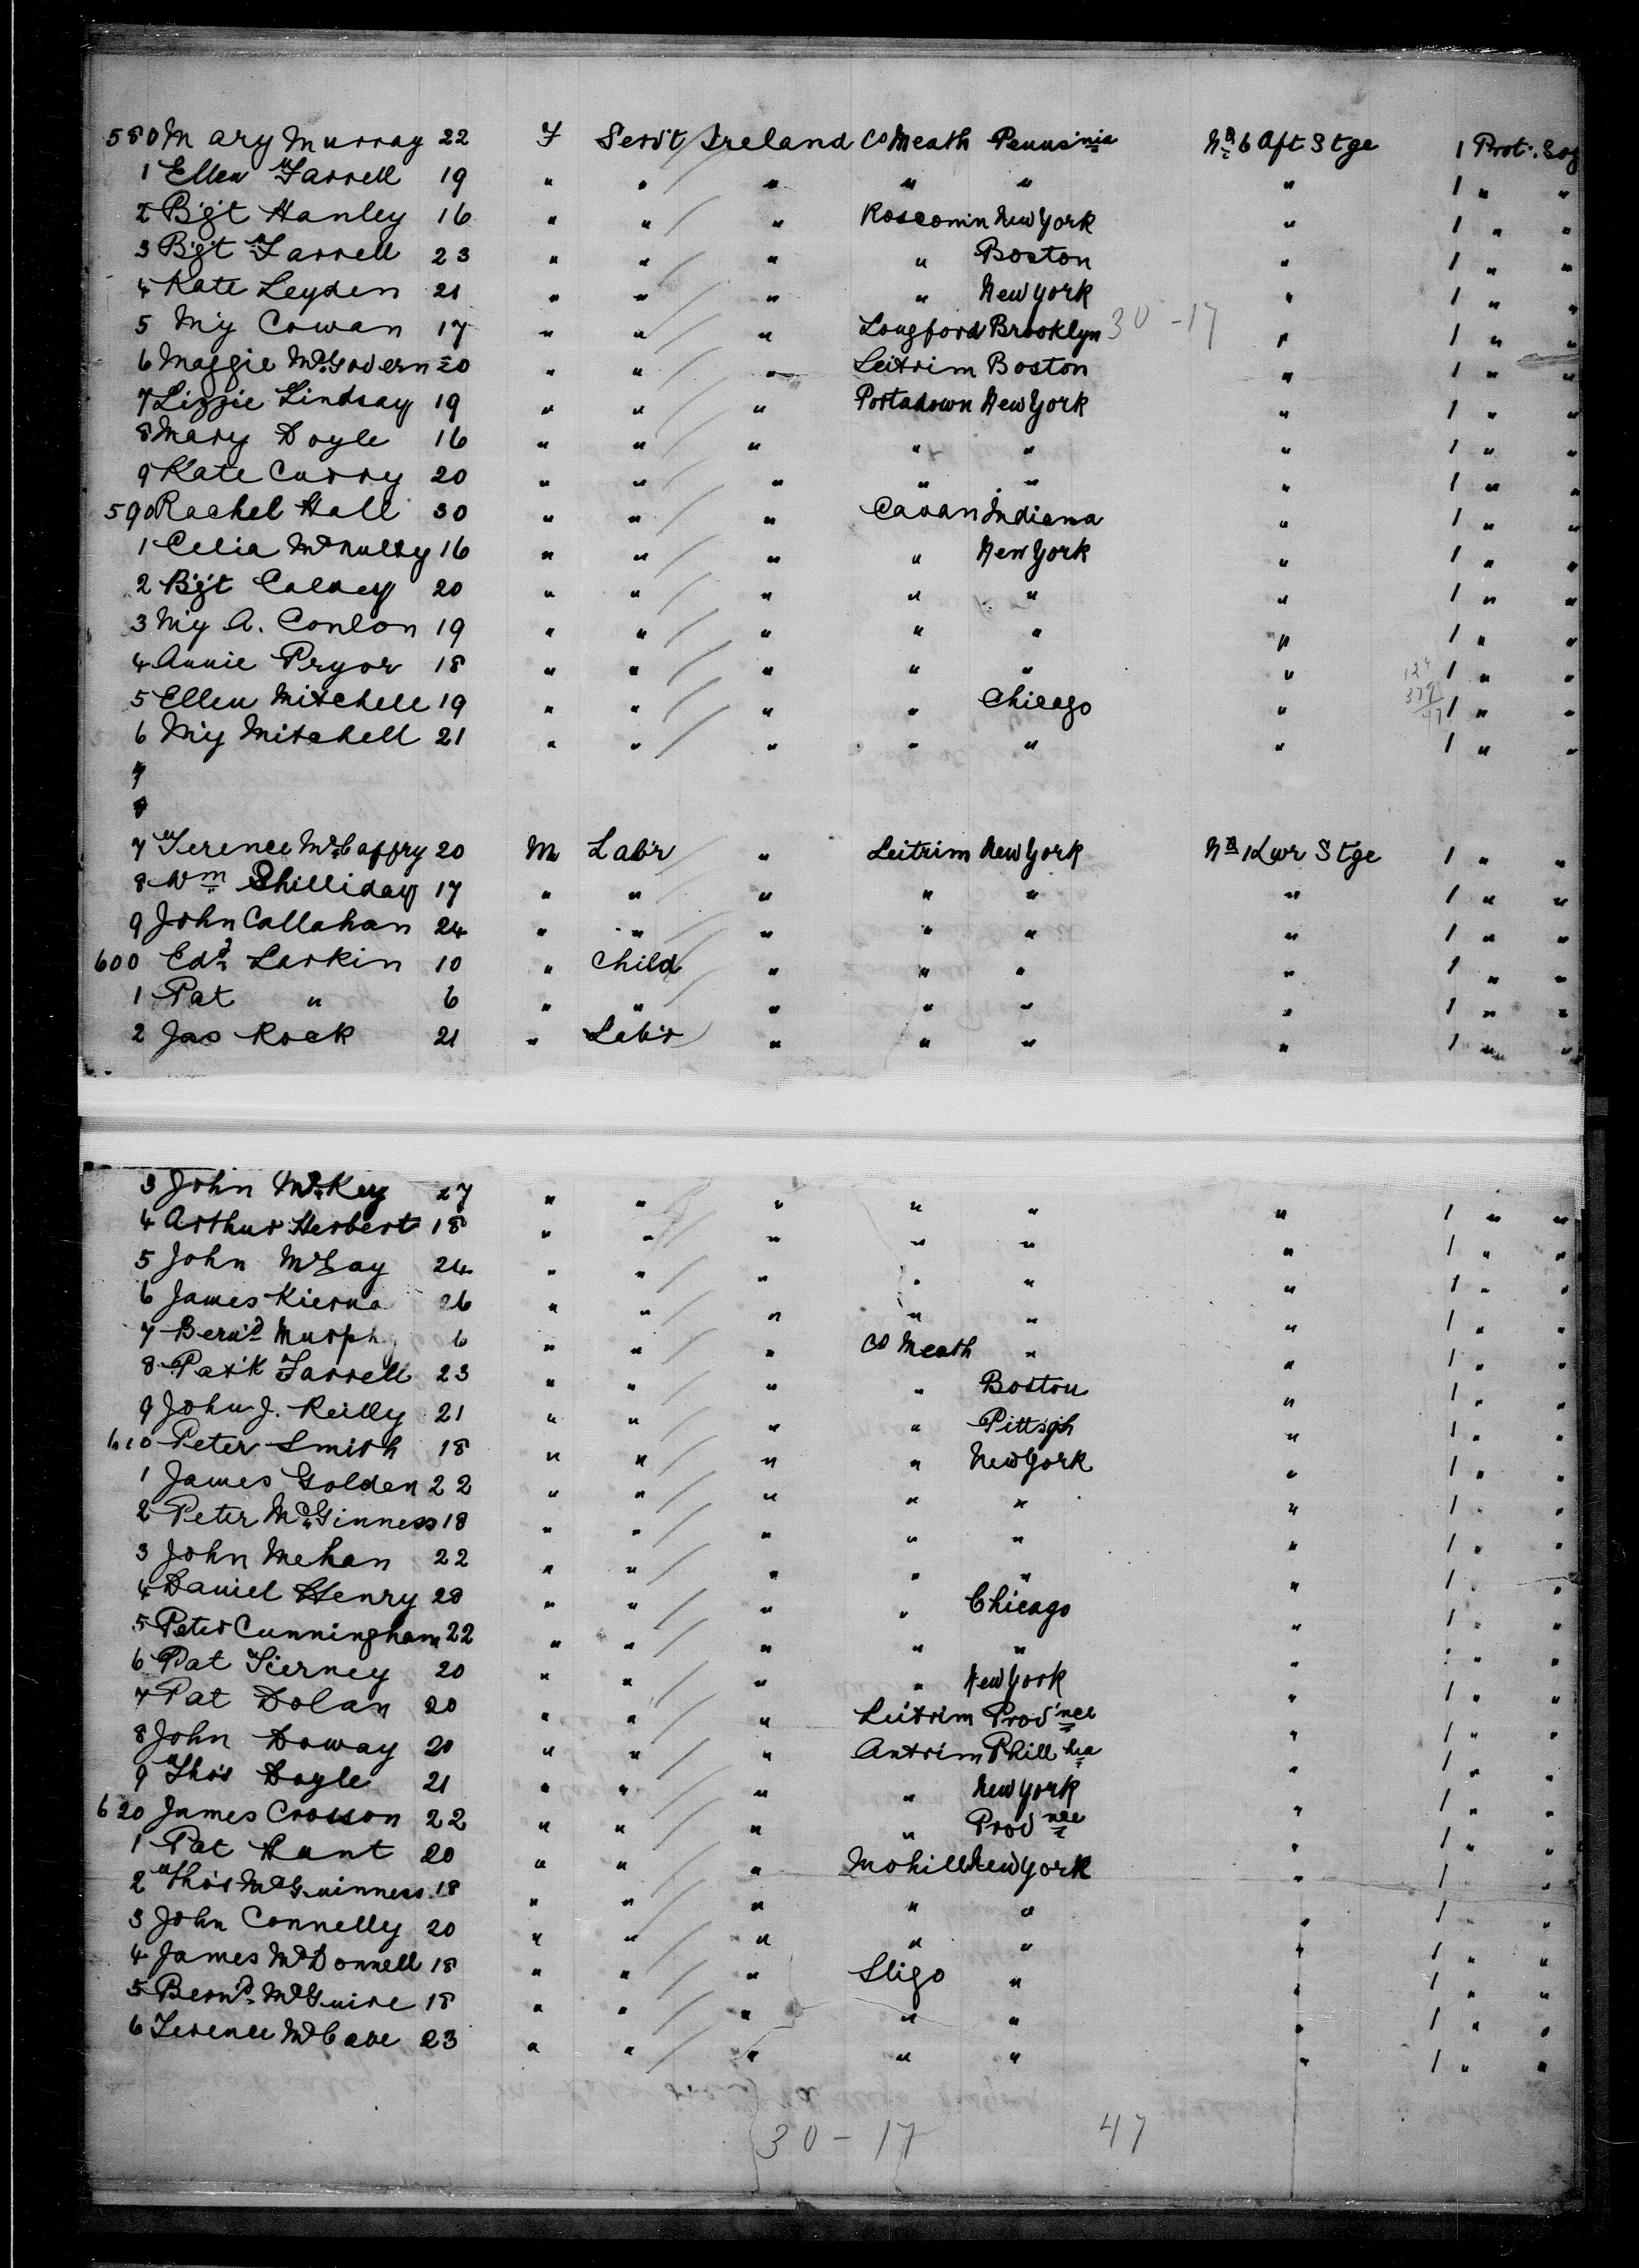 580 Mary Murray 22 F Serv't Ireland Co Meath Penns'nia No 6 Aft Stge 1 Prot.
1 Ellen Farrell 19 " " " " " " 1 " "
2 Bgt Hanley 16 " " " Roscomin New York " 1 " "
3 Bgt Farrell 23 " " " " Boston " 1 " "
4 Kate Leyden 21 " " " " New York " 1 " "
5 My Cowan 17 " " " Longford Brooklyn 30-17 " 1 " "
6 Maggie McGovern 20 " " " Leitrim Boston " 1 " "
7 Lizzie Lindsay 19 " " " Portadown New York " 1 " "
8 Mary Doyle 16 " " " " " " 1 " "
9 Kate Curry 20 " " " " " " 1 " "
590 Rachel Hall 30 " " " Cavan Indiana " 1 " "
1 Celia McNulty 16 " " " " New York " 1 " "
2 Bgt Calvey 20 " " " " " " 1 " "
3 My A. Conlon 19 " " " " " " 1 " "
4 Annie Pryor 18 " " " " " " 1 " "
5 Ellen Mitchell 19 " " " " Chicago " 1 " "
6 My Mitchell 21 " " " " " " 1 " "
7
8
7 Terence McCaffry 20 M Lab'r " Leitrim New York No 1 Lwr Stge 1 " "
8 Wm Shilliday 17 " " " " " " 1 " "
9 John Callahan 24 " " " " " " 1 " "
600 Edd Larkin 10 " Child " " " " 1 " "
1 Pat " 6 " " " " " " 1 " "
2 Jas Rock 21 " Lab'r " " " " 1 " "
3 John McKey 27 " " " " " " 1 " "
4 Arthur Herbert 18 " " " " " " 1 " "
5 John McGay 24 " " " " " " 1 " "
6 James Kierna 26 " " " " " " 1 " "
7 Bern'd Murphy 6 " " " Co Meath " " 1 " "
8 Patk Farrell 23 " " " " Boston " 1 " "
9 John J. Reilly 21 " " " " Pitts'gh " 1 " "
610 Peter Smith 18 " " " " New York " 1 " "
1 James Golden 22 " " " " " " 1 " "
2 Peter McGinness 18 " " " " " " 1 " "
3 John Mehan 22 " " " " " " 1 " "
4 Daniel Henry 20 " " " " Chicago " 1 " "
5 Peter Cunningham 22 " " " " " " 1 " "
6 Pat Tierney 20 " " " " New York " 1 " "
7 Pat Dolan 20 " " " Leitrim Prov'nce " 1 " "
8 John Doway 20 " " " Antrim Phill'hia " 1 " "
9 Tho's Doyle 21 " " " " New York " 1 " "
620 James Crosson 22 " " " " Prov'nce " 1 " "
1 Pat Hunt 20 " " " Mohill New York " 1 " "
2 Tho's McGuinness 18 " " " " " " 1 " "
3 John Connelly 20 " " " " " " 1 " "
4 James McDonnell 18 " " " Sligo " " 1 " "
5 Bernd. McGuire 18 " " " " " " 1 " "
6 Terence McCabe 23 " " " " " " 1 " "
30-17 47